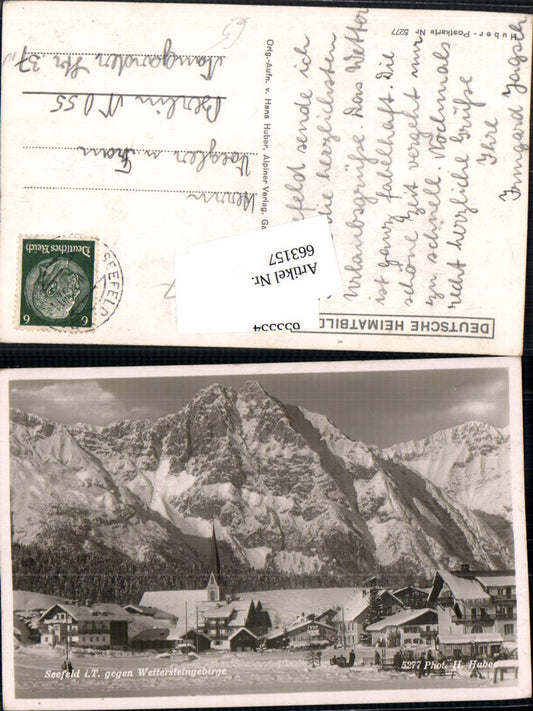 Huber-Postkarte Nr. 5277
Orig.-Aufn. v. Hans Huber, Alpiner Verlag, Ga
feld sende ich
herzlichsten
Urlaubsgrüße. Das Wetter
ist ganz fabelhaft. Die
schöne Zeit vergeht nur
zu schnelle. Nochmals
recht herzliche Grüße
Ihre
Irmgard
Herrn
u. Frau
Berlin N.O 55
Str. 37
Deutsches Reich
6
6
SEEFELD
Artikel Nr.
663157
DEUTSCHE HEIMATBILD
Seefeld i.T. gegen Wettersteingebirge
5277 Phot. H. Huber